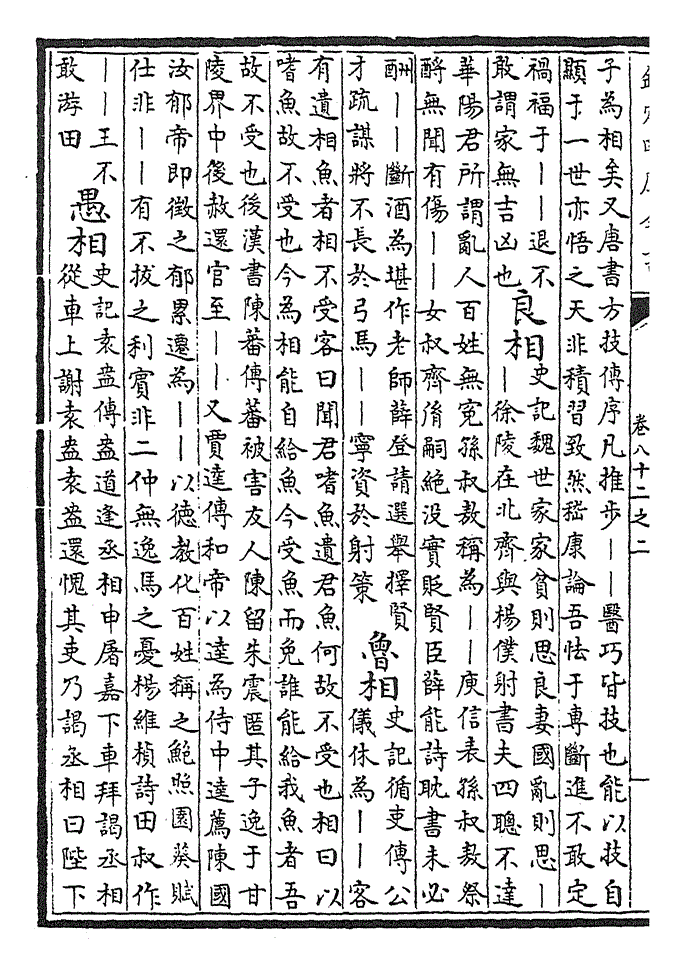 卷八十二之二
子為相矣又唐書方技傳序凡推步丨丨醫巧皆技也能以技自
顯于一世亦悟之天非積習致然嵇康論吾怯于專斷進不敢定
禍福于丨丨退不
敢謂家無吉凶也
良相
史記魏世家家貧則思良妻國亂則思丨
丨徐陵在北齊與楊僕射書夫四聰不達
華陽君所謂亂人百姓無冤孫叔敖稱為丨丨庾信表孫叔敖祭
酹無聞有傷丨丨女叔齊脩嗣絕没實貶賢臣薛能詩耽書未必
酬丨丨斷酒為堪作老師薛登請選舉擇賢
才疏謀將不長於弓馬丨丨寧資於射策
魯相
史記循吏傳公
儀休為丨丨客
有遺相魚者相不受客曰聞君嗜魚遺君魚何故不受也相曰以
嗜魚故不受也今為相能自給魚今受魚而免誰能給我魚者吾
故不受也後漢書陳蕃傳蕃被害友人陳留朱震匿其子逸于甘
陵界中後赦還官至丨丨又賈逵傳和帝以逵為侍中逵薦陳國
汝郁帝即徵之郁累遷為丨丨以德教化百姓稱之鮑照園葵賦
仕非丨丨有不拔之利賓非二仲無逸馬之憂楊維楨詩田叔作
丨丨王不
敢游田
愚相
史記袁盎傳盎道逢丞相申屠嘉下車拜謁丞相
從車上謝袁盎袁盎還愧其吏乃謁丞相曰陛下